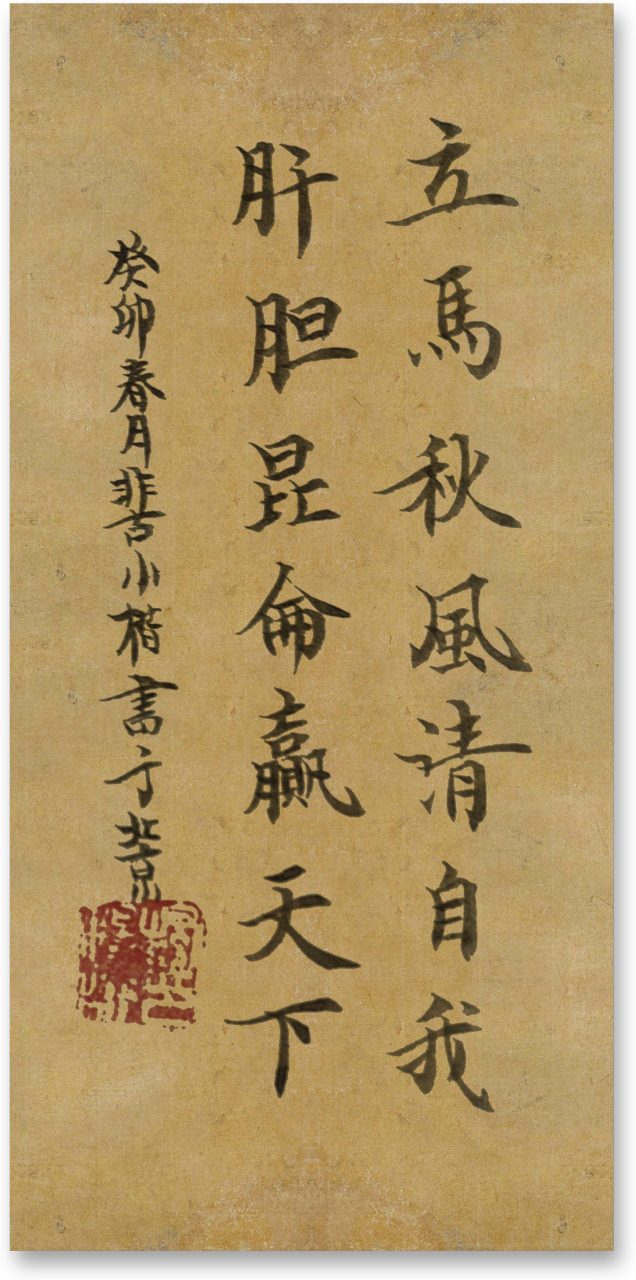 立馬秋風请自我
肝胆昆侖赢天下
癸卯春月小楷書于北京